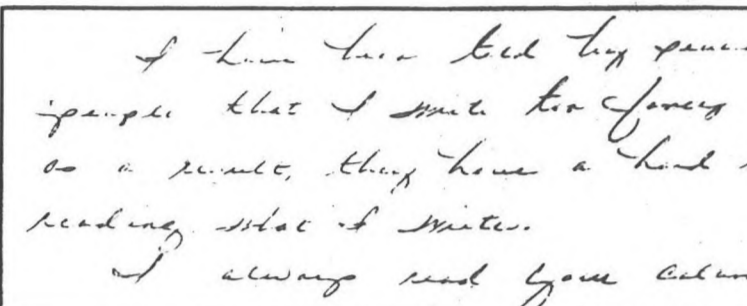 I have been told by
people that I write too fancy
as a result, they have a hard
reading what I write.
I always read your